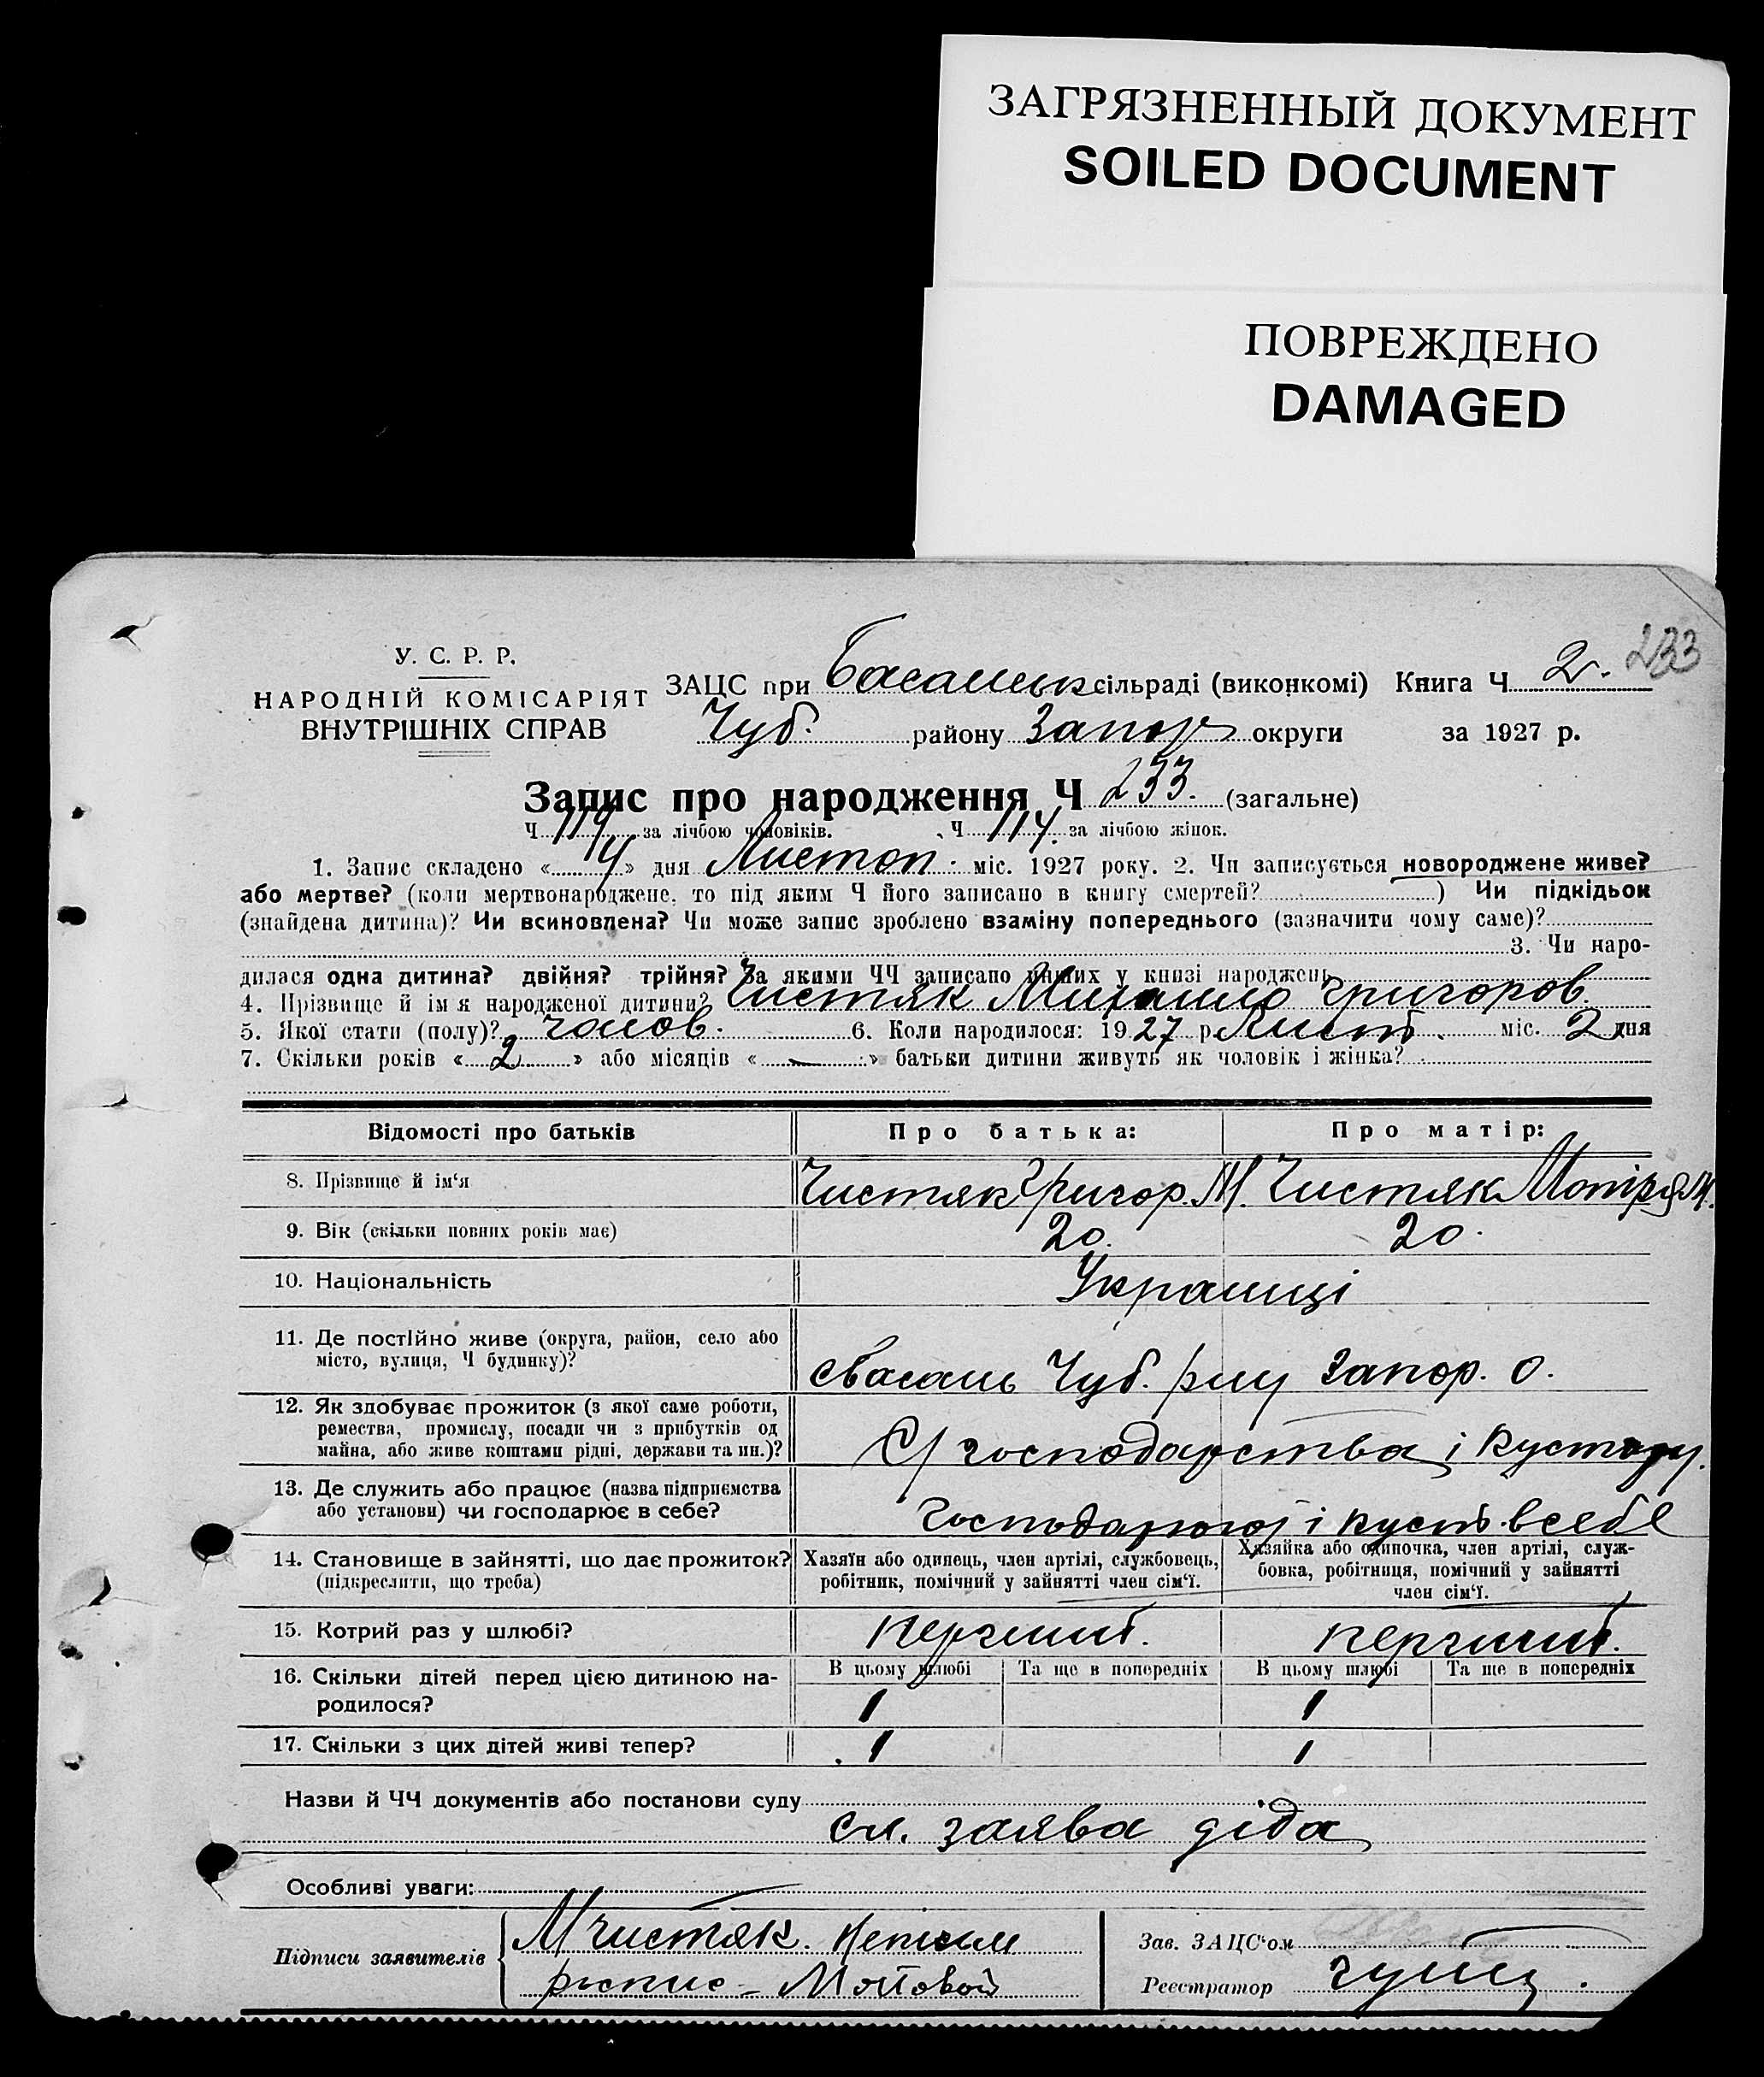 ЗАГРЯЗНЕННЫЙ ДОКУМЕНТ
SOILED DOCUMENT
ПОВРЕЖДЕНО
DAMAGED
233
У. С. Р. Р.
НАРОДНІЙ КОМІСАРІЯТ
ВНУТРІШНІХ СПРАВ
ЗАЦС при Басанськ сільраді (виконкомі) Книга Ч 2.
Чуб. району Запор округи за 1927 р.
Запис про народження Ч 233. (загальне)
Ч 119 за лічбою чоловіків. Ч 114. за лічбою жінок.
1. Запис складено «14» дня Листоп. міс. 1927 року. 2. Чи записується новороджене живе?
або мертве? (коли мертвонароджене, то під яким Ч його записано в книгу смертей?) Чи підкідьок
(знайдена дитина)? Чи всиновлена? Чи може запис зроблено взаміну попереднього (зазначити чому саме)?
3. Чи наро-
дилася одна дитина? двійня? трійня? За якими ЧЧ записано инших у книзі народжень
4. Прізвище й імя народженої дитини? Чистяк Михайло Григоров.
5. Якої стати (полу)? чолов. 6. Коли народилося: 1927 р. Лист. міс. 2 дня
7. Скільки років «2» або місяців «—» батьки дитини живуть як чоловік і жінка?
Відомості про батьків Про батька: Про матір:
8. Прізвище й ім‘я Чистяк Григор. М. Чистяк Мотря М.
9. Вік (скільки повних років має) 20. 20.
10. Національність Українці
11. Де постійно живе (округа, район, село або
місто, вулиця, Ч будинку)? с Басань Чуб. р-ну Запор. о.
12. Як здобуває прожиток (з якої саме роботи,
ремества, промислу, посади чи з прибутків од
майна, або живе коштами рідні, держави та ин.)? С/господарства і кустар.
13. Де служить або працює (назва підприємства
або установи) чи господарює в себе? Господарюють і куст. в себе
14. Становище в зайнятті, що дає прожиток?
(підкреслити, що треба)
Хазяїн або одинець, член артілі, службовець,
робітник, помічний у зайнятті член сім‘ї.
Хазяйка або одиночка, член артілі, служ-
бовка, робітниця, помічний у зайнятті
член сім‘ї.
15. Котрий раз у шлюбі?
16. Скільки дітей перед цією дитиною на-
родилося?
В цьому шлюбі Та ще в попередніх В цьому шлюбі Та ще в попередніх
1 1
17. Скільки з цих дітей живі тепер? 1 1
Назви й ЧЧ документів або постанови суду
сл. заява діда
Особливі уваги:
Підписи заявителів М Чистяк.
Зав. ЗАЦС‘ом
Реєстратор